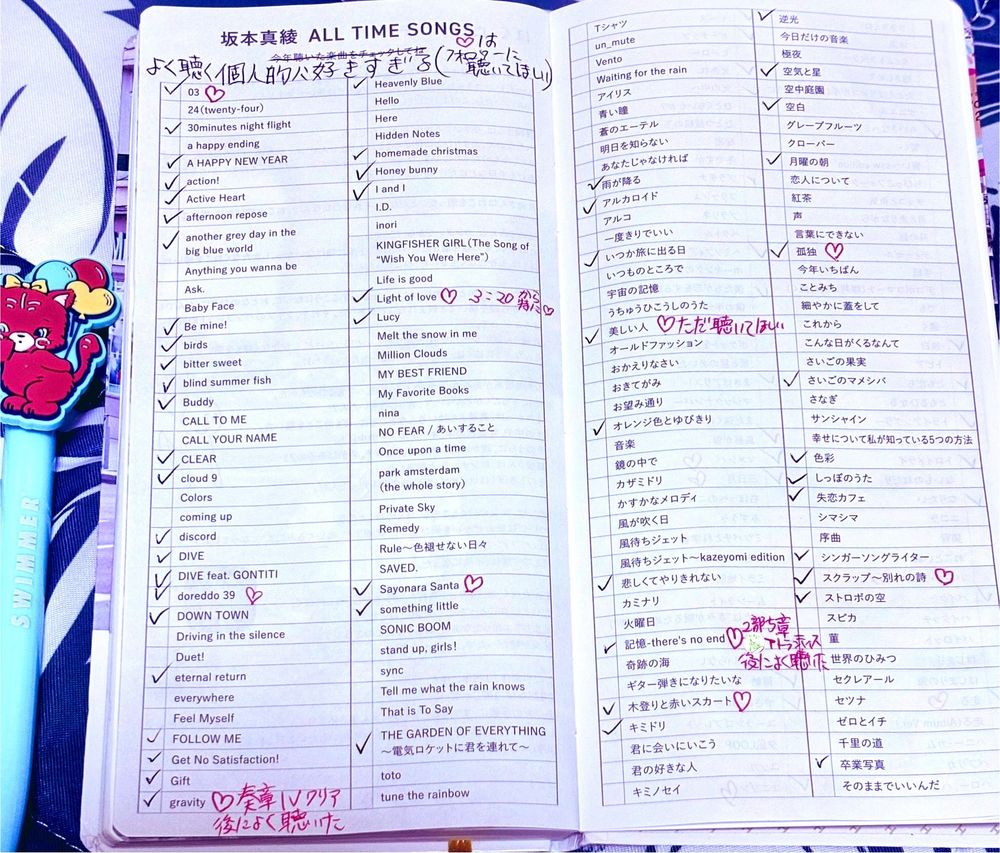 坂本真綾 ALL TIME SONGS
今年聴いた楽曲をチェックしてね
よく聴く個人的に好きすぎ字(♡は
聴いてほしい)
03 ♡
24(twenty-four)
30minutes night flight
a happy ending
A HAPPY NEW YEAR
action!
Active Heart
afternoon repose
another grey day in the
big blue world
Anything you wanna be
Ask.
Baby Face
Be mine!
birds
bitter sweet
blind summer fish
Buddy
CALL TO ME
CALL YOUR NAME
CLEAR
cloud 9
Colors
coming up
discord
DIVE
DIVE feat. GONTITI
doreddo 39 ♡
DOWN TOWN
Driving in the silence
Duet!
eternal return
everywhere
Feel Myself
FOLLOW ME
Get No Satisfaction!
Gift
gravity ♡ 奏章Ⅳクリア
後によく聴いた
Heavenly Blue
Hello
Here
Hidden Notes
homemade christmas
Honey bunny
I and I
I.D.
inori
KINGFISHER GIRL(The Song of
"Wish You Were Here")
Life is good
Light of love ♡ 3:20から特に♡
Lucy
Melt the snow in me
Million Clouds
MY BEST FRIEND
My Favorite Books
nina
NO FEAR / あいすること
Once upon a time
park amsterdam
(the whole story)
Private Sky
Remedy
Rule~色褪せない日々
SAVED.
Sayonara Santa ♡
something little
SONIC BOOM
stand up, girls!
sync
Tell me what the rain knows
That is To Say
THE GARDEN OF EVERYTHING
~電気ロケットに君を連れて~
toto
tune the rainbow
Tシャツ
un_mute
Vento
Waiting for the rain
アイリス
青い瞳
蒼のエーテル
明日を知らない
あなたじゃなければ
雨が降る
アルカロイド
アルコ
一度きりでいい
いつか旅に出る日
いつものところで
宇宙の記憶
うちゅうひこうしのうた
美しい人 ♡ただ聴いてほしい
オールドファッション
おかえりなさい
おきてがみ
お望み通り
オレンジ色とゆびきり
音楽
鏡の中で
カザミドリ
かすかなメロディ
風が吹く日
風待ちジェット
風待ちジェット~kazeyomi edition
悲しくてやりきれない
カミナリ
火曜日
記憶-there's no end ♡2部5章
アトランティス
後によく聴いた
奇跡の海
ギター弾きになりたいな
木登りと赤いスカート♡
キミドリ
君に会いにいこう
君の好きな人
キミノセイ
逆光
今日だけの音楽
極夜
空気と星
空中庭園
空白
グレープフルーツ
クローバー
月曜の朝
恋人について
紅茶
声
言葉にできない
孤独 ♡
今年いちばん
ことみち
細やかに蓋をして
これから
こんな日がくるなんて
さいごの果実
さいごのマメシバ
さなぎ
サンシャイン
幸せについて私が知っている5つの方法
色彩
しっぽのうた
失恋カフェ
シマシマ
序曲
シンガーソングライター
スクラップ~別れの詩 ♡
ストロボの空
スピカ
菫
世界のひみつ
セクレアール
セツナ
ゼロとイチ
千里の道
卒業写真
そのままでいいんだ
SWIMMER